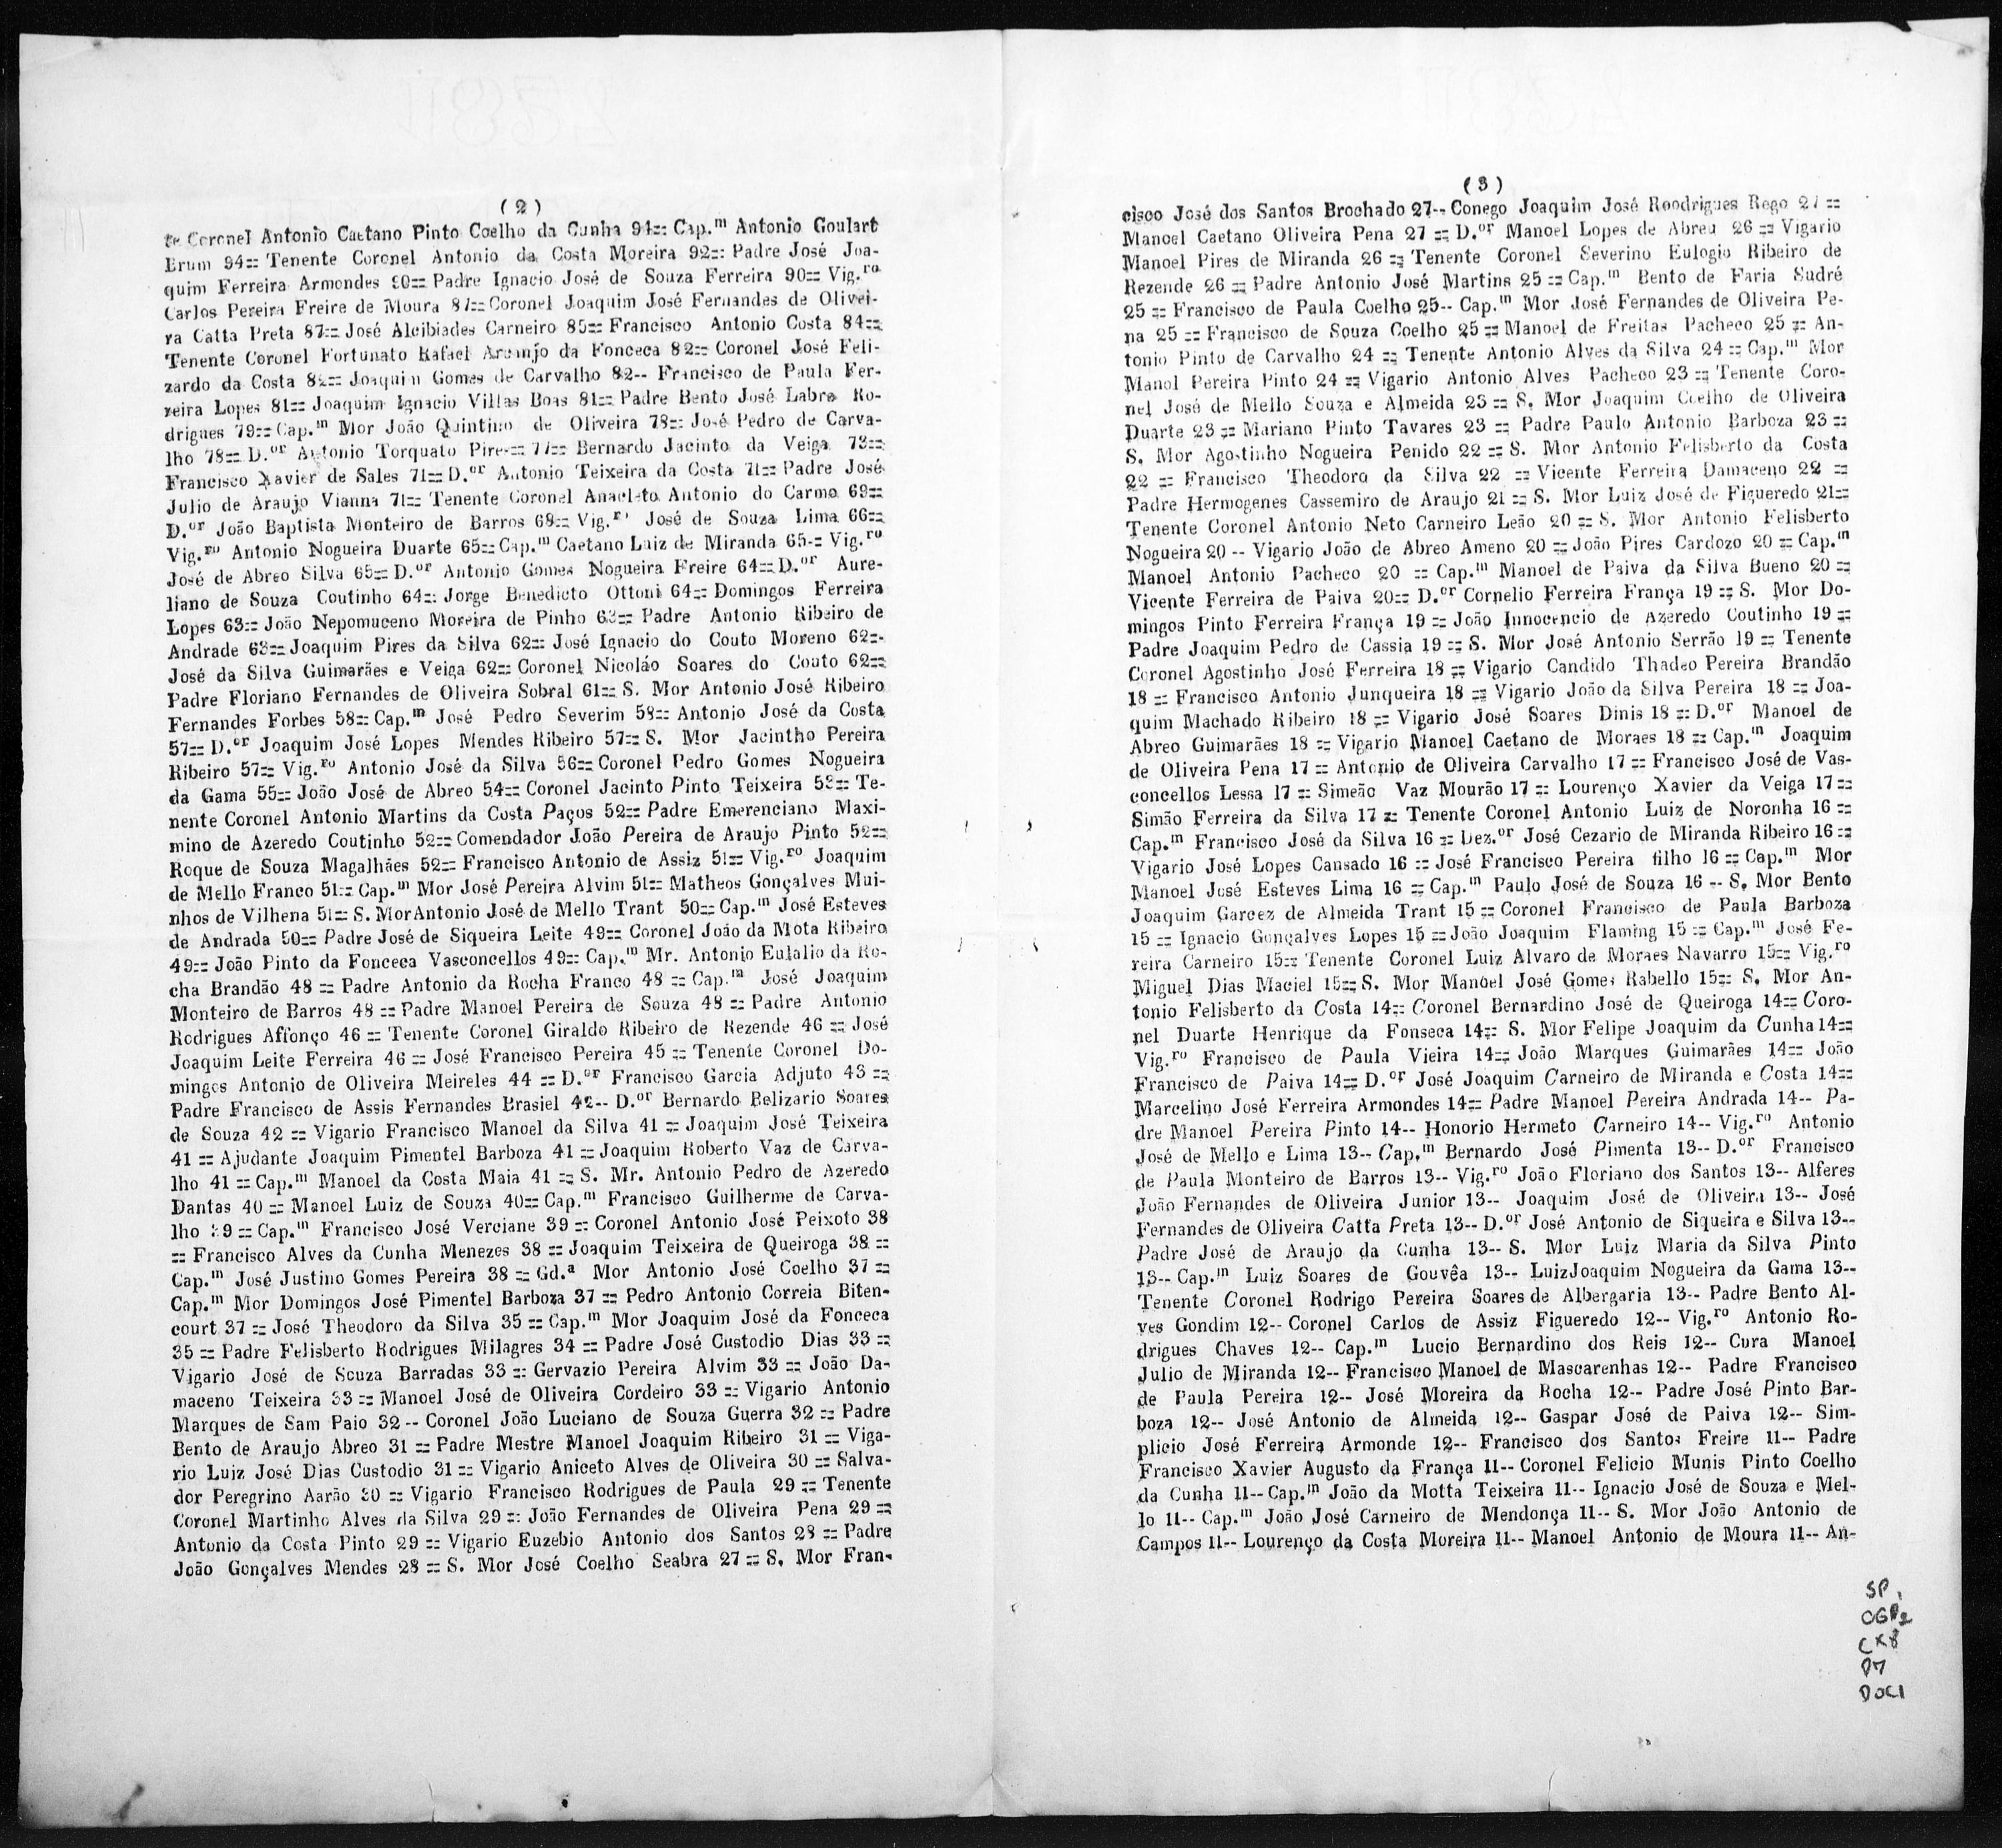 (2)
te Coronel Antonio Caetano Pinto Coelho da Cunha 94== Cap.m Antonio Goulart
Brum 94== Tenente Coronel Antonio da Costa Moreira 92== Padre José Joa-
quim Ferreira Armondes 90== Padre Ignacio José de Souza Ferreira 90== Vig.ro
Carlos Pereira Freire de Moura 87== Coronel Joaquim José Fernandes de Olivei-
ra Catta Preta 87== José Alcibiades Carneiro 85== Francisco Antonio Costa 84==
Tenente Coronel Fortunato Rafael Araujo da Fonceca 82== Coronel José Feli-
zardo da Costa 82== Joaquim Gomes de Carvalho 82-- Francisco de Paula Fer-
reira Lopes 81== Joaquim Ignacio Villas Boas 81== Padre Bento José Labre Ro-
drigues 79== Cap.m Mor João Quintino de Oliveira 78== José Pedro de Carva-
lho 78== D.or Antonio Torquato Pires== 77== Bernardo Jacinto da Veiga 73==
Francisco Xavier de Sales 71== D.or Antonio Teixeira da Costa 71== Padre José
Julio de Araujo Vianna 71== Tenente Coronel Anacleto Antonio do Carmo 69==
D.or João Baptista Monteiro de Barros 68== Vig.r José de Souza Lima 66==
Vig.ro Antonio Nogueira Duarte 65== Cap.m Caetano Luiz de Miranda 65-= Vig.ro
José de Abreo Silva 65== D.or Antonio Gomes Nogueira Freire 64== D.or Aure-
liano de Souza Coutinho 64== Jorge Benedicto Ottoni 64== Domingos Ferreira
Lopes 63== João Nepomuceno Moreira de Pinho 63== Padre Antonio Ribeiro de
Andrade 63== Joaquim Pires da Silva 62== José Ignacio do Couto Moreno 62==
José da Silva Guimarães e Veiga 62== Coronel Nicoláo Soares do Couto 62==
Padre Floriano Fernandes de Oliveira Sobral 61== S. Mor Antonio José Ribeiro
Fernandes Forbes 58== Cap.m José Pedro Severim 58== Antonio José da Costa
57== D.or Joaquim José Lopes Mendes Ribeiro 57== S. Mor Jacintho Pereira
Ribeiro 57== Vig.ro Antonio José da Silva 56== Coronel Pedro Gomes Nogueira
da Gama 55== João José de Abreo 54== Coronel Jacinto Pinto Teixeira 53== Te-
nente Coronel Antonio Martins da Costa Paços 52== Padre Emerenciano Maxi-
mino de Azeredo Coutinho 52== Comendador João Pereira de Araujo Pinto 52==
Roque de Souza Magalhães 52== Francisco Antonio de Assiz 51== Vig.ro Joaquim
de Mello Franco 51== Cap.m Mor José Pereira Alvim 51== Matheos Gonçalves Mui-
nhos de Vilhena 51== S. Mor Antonio José de Mello Trant 50== Cap.m José Esteves
de Andrada 50== Padre José de Siqueira Leite 49== Coronel João da Mota Ribeiro
49== João Pinto da Fonceca Vasconcellos 49== Cap.m Mr. Antonio Eulalio da Ro-
cha Brandão 48 == Padre Antonio da Rocha Franco 48 == Cap.m José Joaquim
Monteiro de Barros 48 == Padre Manoel Pereira de Souza 48 == Padre Antonio
Rodrigues Affonço 46 == Tenente Coronel Giraldo Ribeiro de Rezende 46 == José
Joaquim Leite Ferreira 46 == José Francisco Pereira 45 == Tenente Coronel Do-
mingos Antonio de Oliveira Meireles 44 == D.or Francisco Garcia Adjuto 43 ==
Padre Francisco de Assis Fernandes Brasiel 42-- D.or Bernardo Belizario Soares
de Souza 42 == Vigario Francisco Manoel da Silva 41 == Joaquim José Teixeira
41 == Ajudante Joaquim Pimentel Barboza 41 == Joaquim Roberto Vaz de Carva-
lho 41 == Cap.m Manoel da Costa Maia 41 == S. Mr. Antonio Pedro de Azeredo
Dantas 40 == Manoel Luiz de Souza 40== Cap.m Francisco Guilherme de Carva-
lho 39 == Cap.m Francisco José Verciane 39 == Coronel Antonio José Peixoto 38
== Francisco Alves da Cunha Menezes 38 == Joaquim Teixeira de Queiroga 38 ==
Cap.m José Justino Gomes Pereira 38 == Gd.a Mor Antonio José Coelho 37 ==
Cap.m Mor Domingos José Pimentel Barboza 37 == Pedro Antonio Correia Biten-
court 37 == José Theodoro da Silva 35 == Cap.m Mor Joaquim José da Fonceca
35 == Padre Felisberto Rodrigues Milagres 34 == Padre José Custodio Dias 33 ==
Vigario José de Souza Barradas 33 == Gervazio Pereira Alvim 33 == João Da-
maceno Teixeira 33 == Manoel José de Oliveira Cordeiro 33 == Vigario Antonio
Marques de Sam Paio 32 -- Coronel João Luciano de Souza Guerra 32 == Padre
Bento de Araujo Abreo 31 == Padre Mestre Manoel Joaquim Ribeiro 31 == Viga-
rio Luiz José Dias Custodio 31 == Vigario Aniceto Alves de Oliveira 30 == Salva-
dor Peregrino Aarão 30 == Vigario Francisco Rodrigues de Paula 29 == Tenente
Coronel Martinho Alves da Silva 29 == João Fernandes de Oliveira Pena 29 ==
Antonio da Costa Pinto 29 == Vigario Euzebio Antonio dos Santos 28 == Padre
João Gonçalves Mendes 28 == S. Mor José Coelho Seabra 27 == S. Mor Fran-
(3)
cisco José dos Santos Brochado 27-- Conego Joaquim José Roodrigues Rego 27 ==
Manoel Caetano Oliveira Pena 27 == D.or Manoel Lopes de Abreu 26 == Vigario
Manoel Pires de Miranda 26 == Tenente Coronel Severino Eulogio Ribeiro de
Rezende 26 == Padre Antonio José Martins 25 == Cap.m Bento de Faria Sudré
25 == Francisco de Paula Coelho 25-- Cap.m Mor José Fernandes de Oliveira Pe-
na 25 == Francisco de Souza Coelho 25 == Manoel de Freitas Pacheco 25 == An-
tonio Pinto de Carvalho 24 == Tenente Antonio Alves da Silva 24 == Cap.m Mor
Manol Pereira Pinto 24 == Vigario Antonio Alves Pacheco 23 == Tenente Coro-
nel José de Mello Souza e Almeida 23 == S. Mor Joaquim Coelho de Oliveira
Duarte 23 == Mariano Pinto Tavares 23 == Padre Paulo Antonio Barboza 23 ==
S. Mor Agostinho Nogueira Penido 22 == S. Mor Antonio Felisberto da Costa
22 == Francisco Theodoro da Silva 22 == Vicente Ferreira Damaceno 22 ==
Padre Hermogenes Cassemiro de Araujo 21 == S. Mor Luiz José de Figueredo 21==
Tenente Coronel Antonio Neto Carneiro Leão 20 == S. Mor Antonio Felisberto
Nogueira 20 -- Vigario João de Abreo Ameno 20 == João Pires Cardozo 20 == Cap.m
Manoel Antonio Pacheco 20 == Cap.m Manoel de Paiva da Silva Bueno 20 ==
Vicente Ferreira de Paiva 20== D.or Cornelio Ferreira França 19 == S. Mor Do-
mingos Pinto Ferreira França 19 == João Innocencio de Azeredo Coutinho 19 ==
Padre Joaquim Pedro de Cassia 19 == S. Mor José Antonio Serrão 19 == Tenente
Coronel Agostinho José Ferreira 18 == Vigario Candido Thadeo Pereira Brandão
18 == Francisco Antonio Junqueira 18 == Vigario João da Silva Pereira 18 == Joa-
quim Machado Ribeiro 18 == Vigario José Soares Dinis 18 == D.or Manoel de
Abreo Guimarães 18 == Vigario Manoel Caetano de Moraes 18 == Cap.m Joaquim
de Oliveira Pena 17 == Antonio de Oliveira Carvalho 17 == Francisco José de Vas-
concellos Lessa 17 == Simeão Vaz Mourão 17 == Lourenço Xavier da Veiga 17 ==
Simão Ferreira da Silva 17 == Tenente Coronel Antonio Luiz de Noronha 16 ==
Cap.m Francisco José da Silva 16 == Dez.or José Cezario de Miranda Ribeiro 16 ==
Vigario José Lopes Cansado 16 == José Francisco Pereira filho 16 == Cap.m Mor
Manoel José Esteves Lima 16 == Cap.m Paulo José de Souza 16 -- S. Mor Bento
Joaquim Garcez de Almeida Trant 15 == Coronel Francisco de Paula Barboza
15 == Ignacio Gonçalves Lopes 15 == João Joaquim Flaming 15 == Cap.m José Fe-
reira Carneiro 15== Tenente Coronel Luiz Alvaro de Moraes Navarro 15== Vig.ro
Miguel Dias Maciel 15== S. Mor Manoel José Gomes Rabello 15== S. Mor An-
tonio Felisberto da Costa 14== Coronel Bernardino José de Queiroga 14== Coro-
nel Duarte Henrique da Fonseca 14== S. Mor Felipe Joaquim da Cunha 14==
Vig.ro Francisco de Paula Vieira 14== João Marques Guimarães 14== João
Francisco de Paiva 14== D.or José Joaquim Carneiro de Miranda e Costa 14==
Marcelino José Ferreira Armondes 14== Padre Manoel Pereira Andrada 14-- Pa-
dre Manoel Pereira Pinto 14-- Honorio Hermeto Carneiro 14-- Vig.ro Antonio
José de Mello e Lima 13-- Cap.m Bernardo José Pimenta 13-- D.or Francisco
de Paula Monteiro de Barros 13-- Vig.ro João Floriano dos Santos 13-- Alferes
João Fernandes de Oliveira Junior 13-- Joaquim José de Oliveira 13-- José
Fernandes de Oliveira Catta Preta 13-- D.or José Antonio de Siqueira e Silva 13--
Padre José de Araujo da Cunha 13-- S. Mor Luiz Maria da Silva Pinto
13-- Cap.m Luiz Soares de Gouvêa 13-- Luiz Joaquim Nogueira da Gama 13--
Tenente Coronel Rodrigo Pereira Soares de Albergaria 13-- Padre Bento Al-
ves Gondim 12-- Coronel Carlos de Assiz Figueredo 12-- Vig.ro Antonio Ro-
drigues Chaves 12-- Cap.m Lucio Bernardino dos Reis 12-- Cura Manoel
Julio de Miranda 12-- Francisco Manoel de Mascarenhas 12-- Padre Francisco
de Paula Pereira 12-- José Moreira da Rocha 12-- Padre José Pinto Bar-
boza 12-- José Antonio de Almeida 12-- Gaspar José de Paiva 12-- Sim-
plicio José Ferreira Armonde 12-- Francisco dos Santos Freire 11-- Padre
Francisco Xavier Augusto da França 11-- Coronel Felicio Munis Pinto Coelho
da Cunha 11-- Cap.m João da Motta Teixeira 11-- Ignacio José de Souza e Mel-
lo 11-- Cap.m João José Carneiro de Mendonça 11-- S. Mor João Antonio de
Campos 11-- Lourenço da Costa Moreira 11-- Manoel Antonio de Moura 11-- An-
SP.
CX8
P7
DOC1